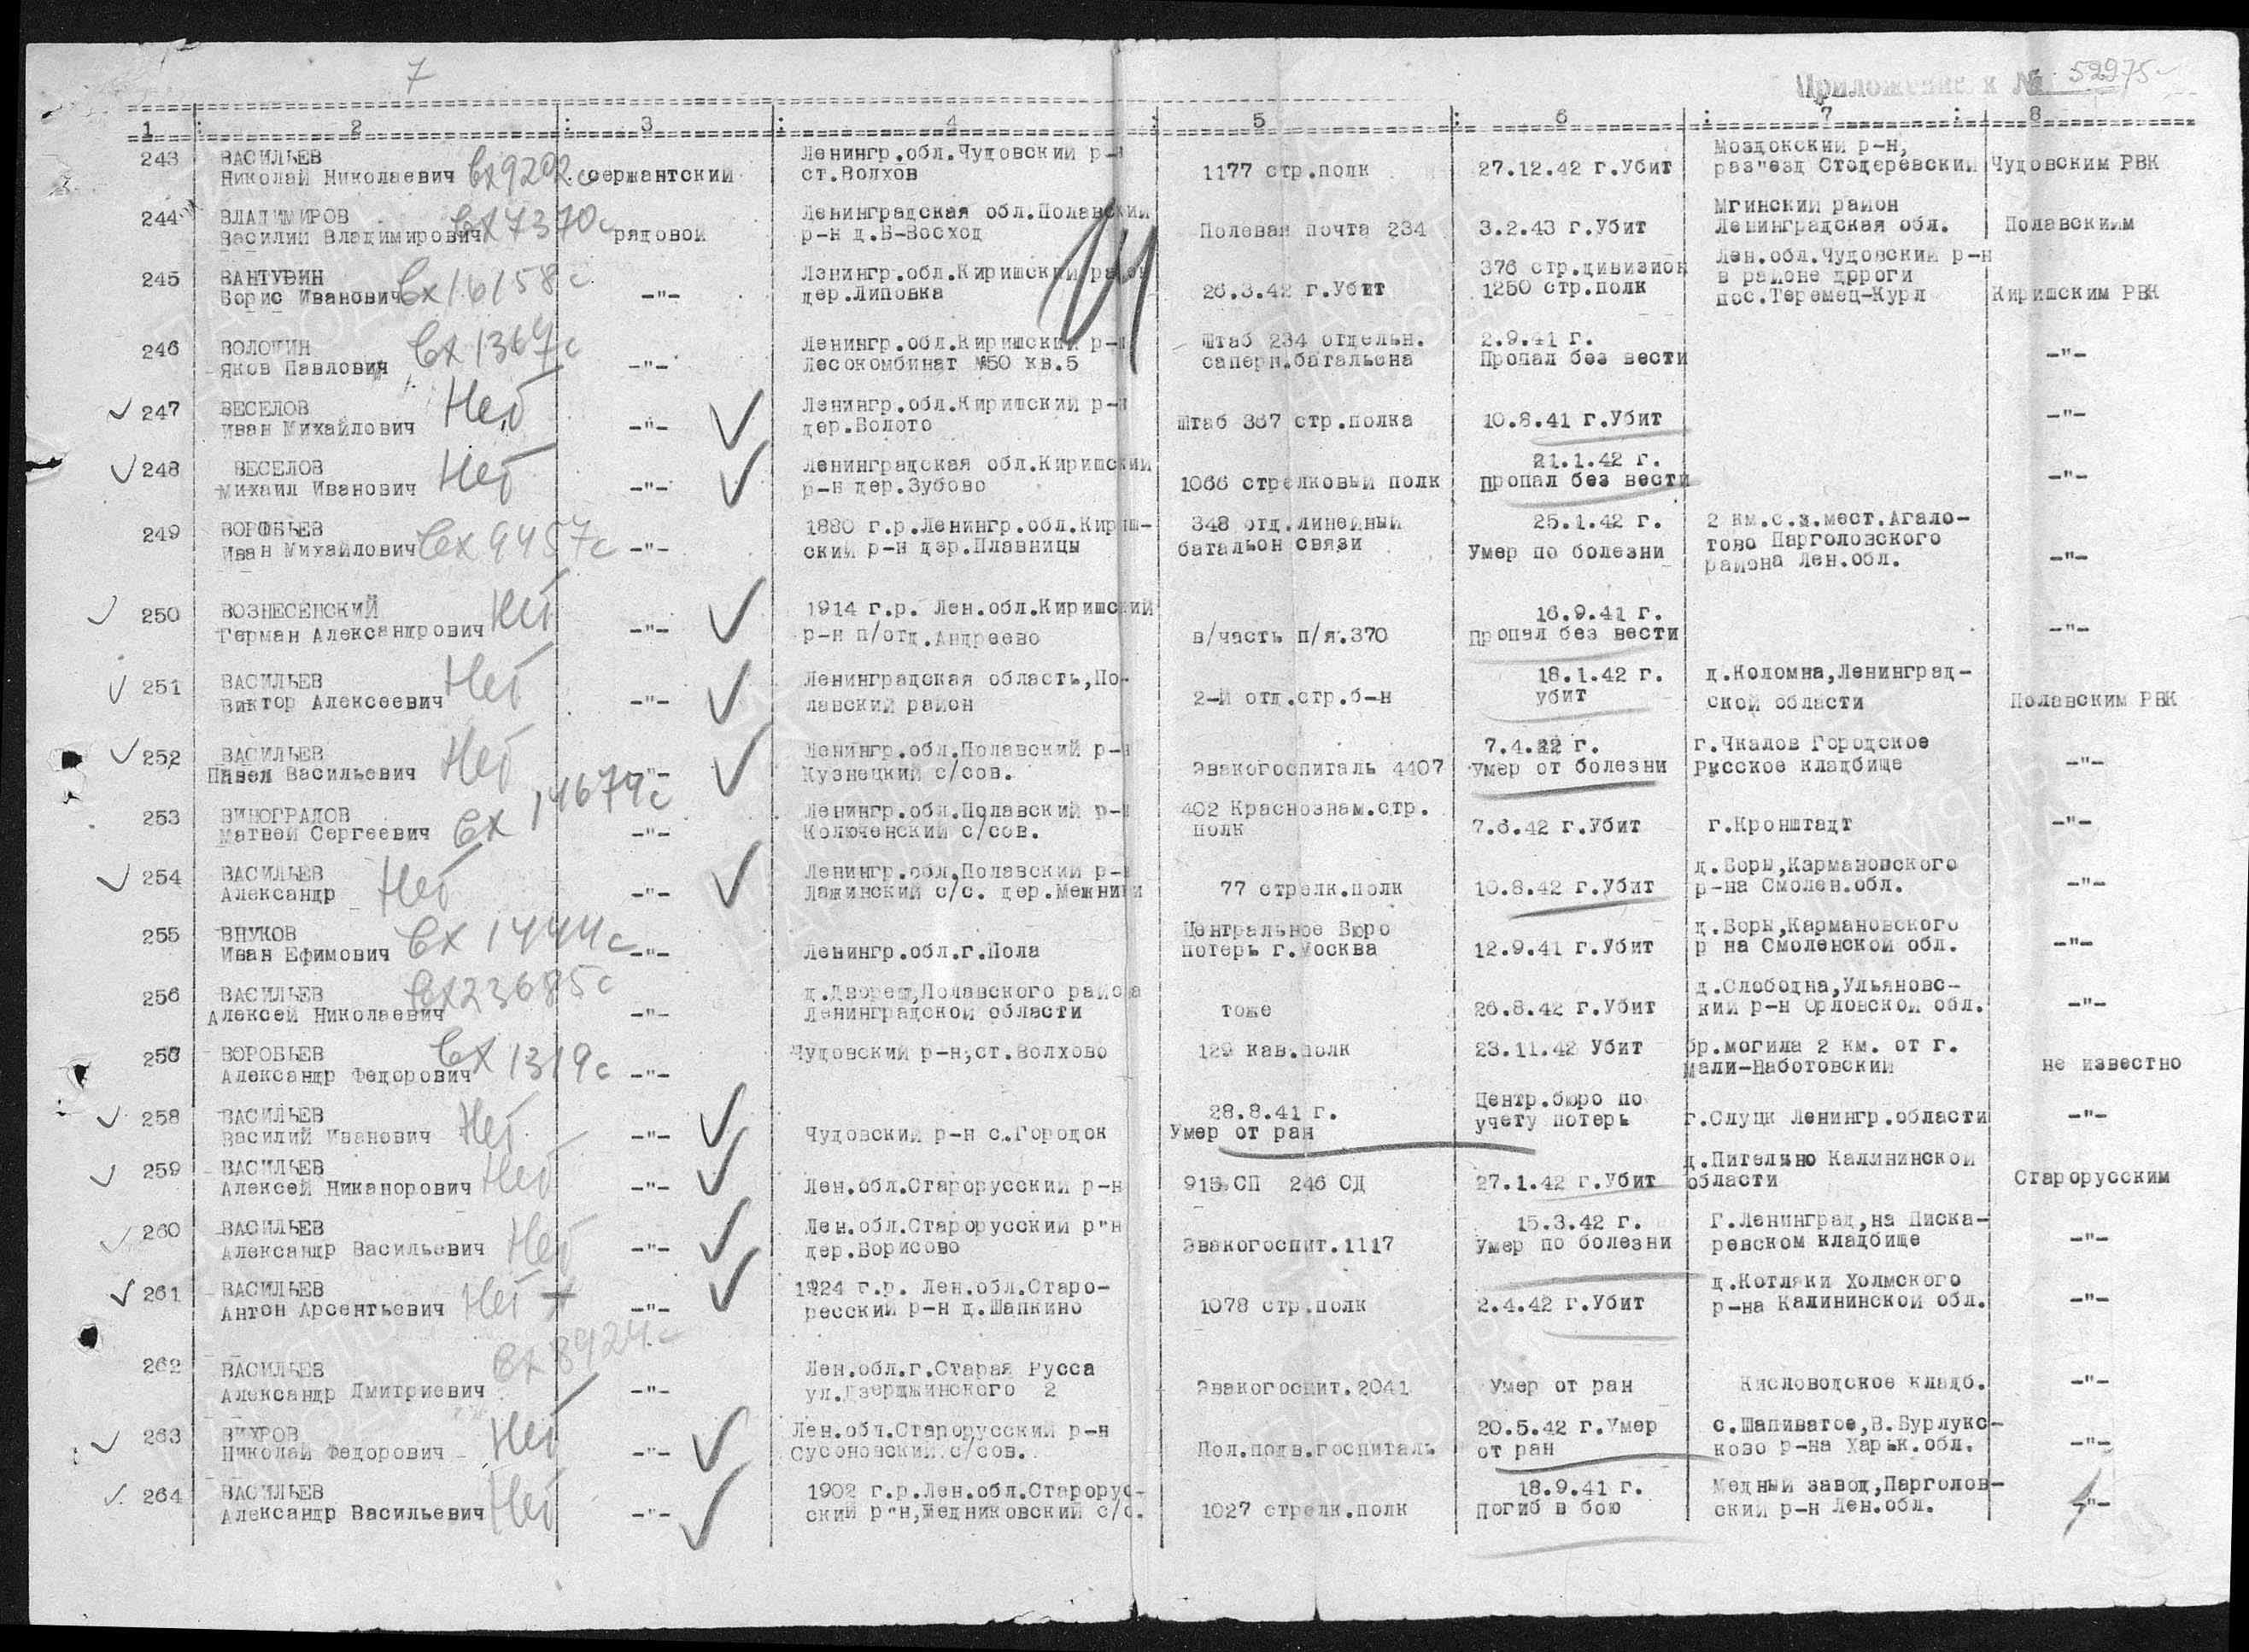 7
Приложение к № 52975
1 2 3 4 5 6 7 8
243 ВАСИЛЬЕВ Николай Николаевич Вх9202с сержантский
Ленингр.обл.Чудовский р-н
ст.Волхов
1177 стр.полк
27.12.42 г.Убит
Моздокский р-н,
раз"езд Стодеревский
Чудовским РВК
244 ВЛАДИМИРОВ
Василий Владимирович Вх7370с рядовой
Ленинградская обл.Полавский
р-н д.Б-Восход
Полевая почта 234
3.2.43 г.Убит
Мгинский район
Ленинградская обл.
Полавскиим
245 ВАНТУВИН
Борис Иванович Вх16158с -"-
Ленингр.обл.Киришский район
дер.Липовка
26.3.42 г.Убит
376 стр.дивизион
1250 стр.полк
Лен.обл.Чудовский р-н
в районе дороги
пос.Теремец-Курл
Киришским РВК
246 ВОЛОШИН
Яков Павлович Вх1367с -"-
Ленингр.обл.Киришский р-н
Лесокомбинат №50 кв.5
Штаб 234 отдельн.
саперн.батальона
2.9.41 г.
Пропал без вести
-"-
247 ВЕСЕЛОВ
Иван Михайлович Нет -"-
Ленингр.обл.Киришский р-н
дер.Болото
Штаб 367 стр.полка
10.8.41 г.Убит
-"-
248 ВЕСЕЛОВ
Михаил Иванович Нет -"-
Ленинградская обл.Киришский
р-н дер.Зубово
1066 стрелковый полк
21.1.42 г.
Пропал без вести
-"-
249 ВОРОБЬЕВ
Иван Михайлович Вх9457с -"-
1880 г.р.Ленингр.обл.Кириш-
ский р-н дер.Плавницы
348 отд.линейный
батальон связи
25.1.42 г.
Умер по болезни
2 км.с.з.мест.Агало-
тово Парголовского
района Лен.обл.
-"-
250 ВОЗНЕСЕНСКИЙ
Герман Александрович Нет -"-
1914 г.р. Лен.обл.Киришский
р-н п/отд.Андреево
в/часть п/я.370
16.9.41 г.
Пропал без вести
-"-
251 ВАСИЛЬЕВ
Виктор Алексеевич Нет -"-
Ленинградская область,По-
лавский район
2-й отд.стр.б-н
18.1.42 г.
убит
д.Коломна,Ленинград-
ской области
Полавским РВК
252 ВАСИЛЬЕВ
Павел Васильевич Нет -"-
Ленингр.обл.Полавский р-н
Кузнецкий с/сов.
Эвакогоспиталь 4407
7.4.42 г.
Умер от болезни
г.Чкалов Городское
Русское кладбище
-"-
253 ВИНОГРАДОВ
Матвей Сергеевич Вх 14679с -"-
Ленингр.обл.Полавский р-н
Колюченский с/сов.
402 Краснознам.стр.
полк
7.6.42 г.Убит
г.Кронштадт
-"-
254 ВАСИЛЬЕВ
Александр Нет -"-
Ленингр.обл,Полавский р-н
Лажинский с/с. дер.Межники
77 стрелк.полк
10.8.42 г.Убит
д.Боры,Кармановского
р-на Смолен.обл.
-"-
255 ВНУКОВ
Иван Ефимович Вх 1444с -"-
Ленингр.обл.г.Пола
Центральное Бюро
потерь г.Москва
12.9.41 г.Убит
д.Боры,Кармановского
р на Смоленской обл.
-"-
256 ВАСИЛЬЕВ
Алексей Николаевич Вх23685с -"-
д.Дворец,Полавского района
Ленинградской области
тоже
26.8.42 г.Убит
д.Слободна,Ульяновс-
кий р-н Орловской обл.
-"-
257 ВОРОБЬЕВ
Александр Федорович Вх1319с -"-
Чудовский р-н,ст.Волхово
129 кав.полк
23.11.42 Убит
бр.могила 2 км. от г.
Мали-Наботовский
не известно
258 ВАСИЛЬЕВ
Василий Иванович Нет -"-
Чудовский р-н с.Городок
28.8.41 г.
Умер от ран
Центр.бюро по
учету потерь
г.Слуцк Ленингр.области
-"-
259 ВАСИЛЬЕВ
Алексей Никанорович Нет -"-
Лен.обл.Старорусский р-н
915 СП 246 СД
27.1.42 г.Убит
д.Пительно Калининской
области
Старорусским
260 ВАСИЛЬЕВ
Александр Васильевич Нет -"-
Лен.обл.Старорусский р"н
дер.Борисово
Эвакогоспит.1117
15.3.42 г.
Умер по болезни
Г.Ленинград,на Писка-
ревском кладбище
-"-
261 ВАСИЛЬЕВ
Антон Арсентьевич Нет + -"-
1924 г.р. Лен.обл.Старо-
ресский р-н д.Шапкино
1078 стр.полк
2.4.42 г.Убит
д.Котляки Холмского
р-на Калининской обл.
-"-
262 ВАСИЛЬЕВ
Александр Дмитриевич Вх8424с -"-
Лен.обл.г.Старая Русса
ул.Дзержинского 2
Эвакогоспит.2041
Умер от ран
Кисловодское кладб.
-"-
263 ВИХРОВ
Николай Федорович Нет -"-
Лен.обл.Старорусский р-н
Сусоновский с/сов.
Пол.подв.госпиталь
20.5.42 г.Умер
от ран
с.Шапиватое,В.Бурлукс-
ково р-на Харьк.обл.
-"-
264 ВАСИЛЬЕВ
Александр Васильевич Нет -"-
1902 г.р.Лен.обл.Старорус-
ский р"н,Медниковский с/с.
1027 стрелк.полк
18.9.41 г.
Погиб в бою
Медный завод,Парголов-
ский р-н Лен.обл.
-"-